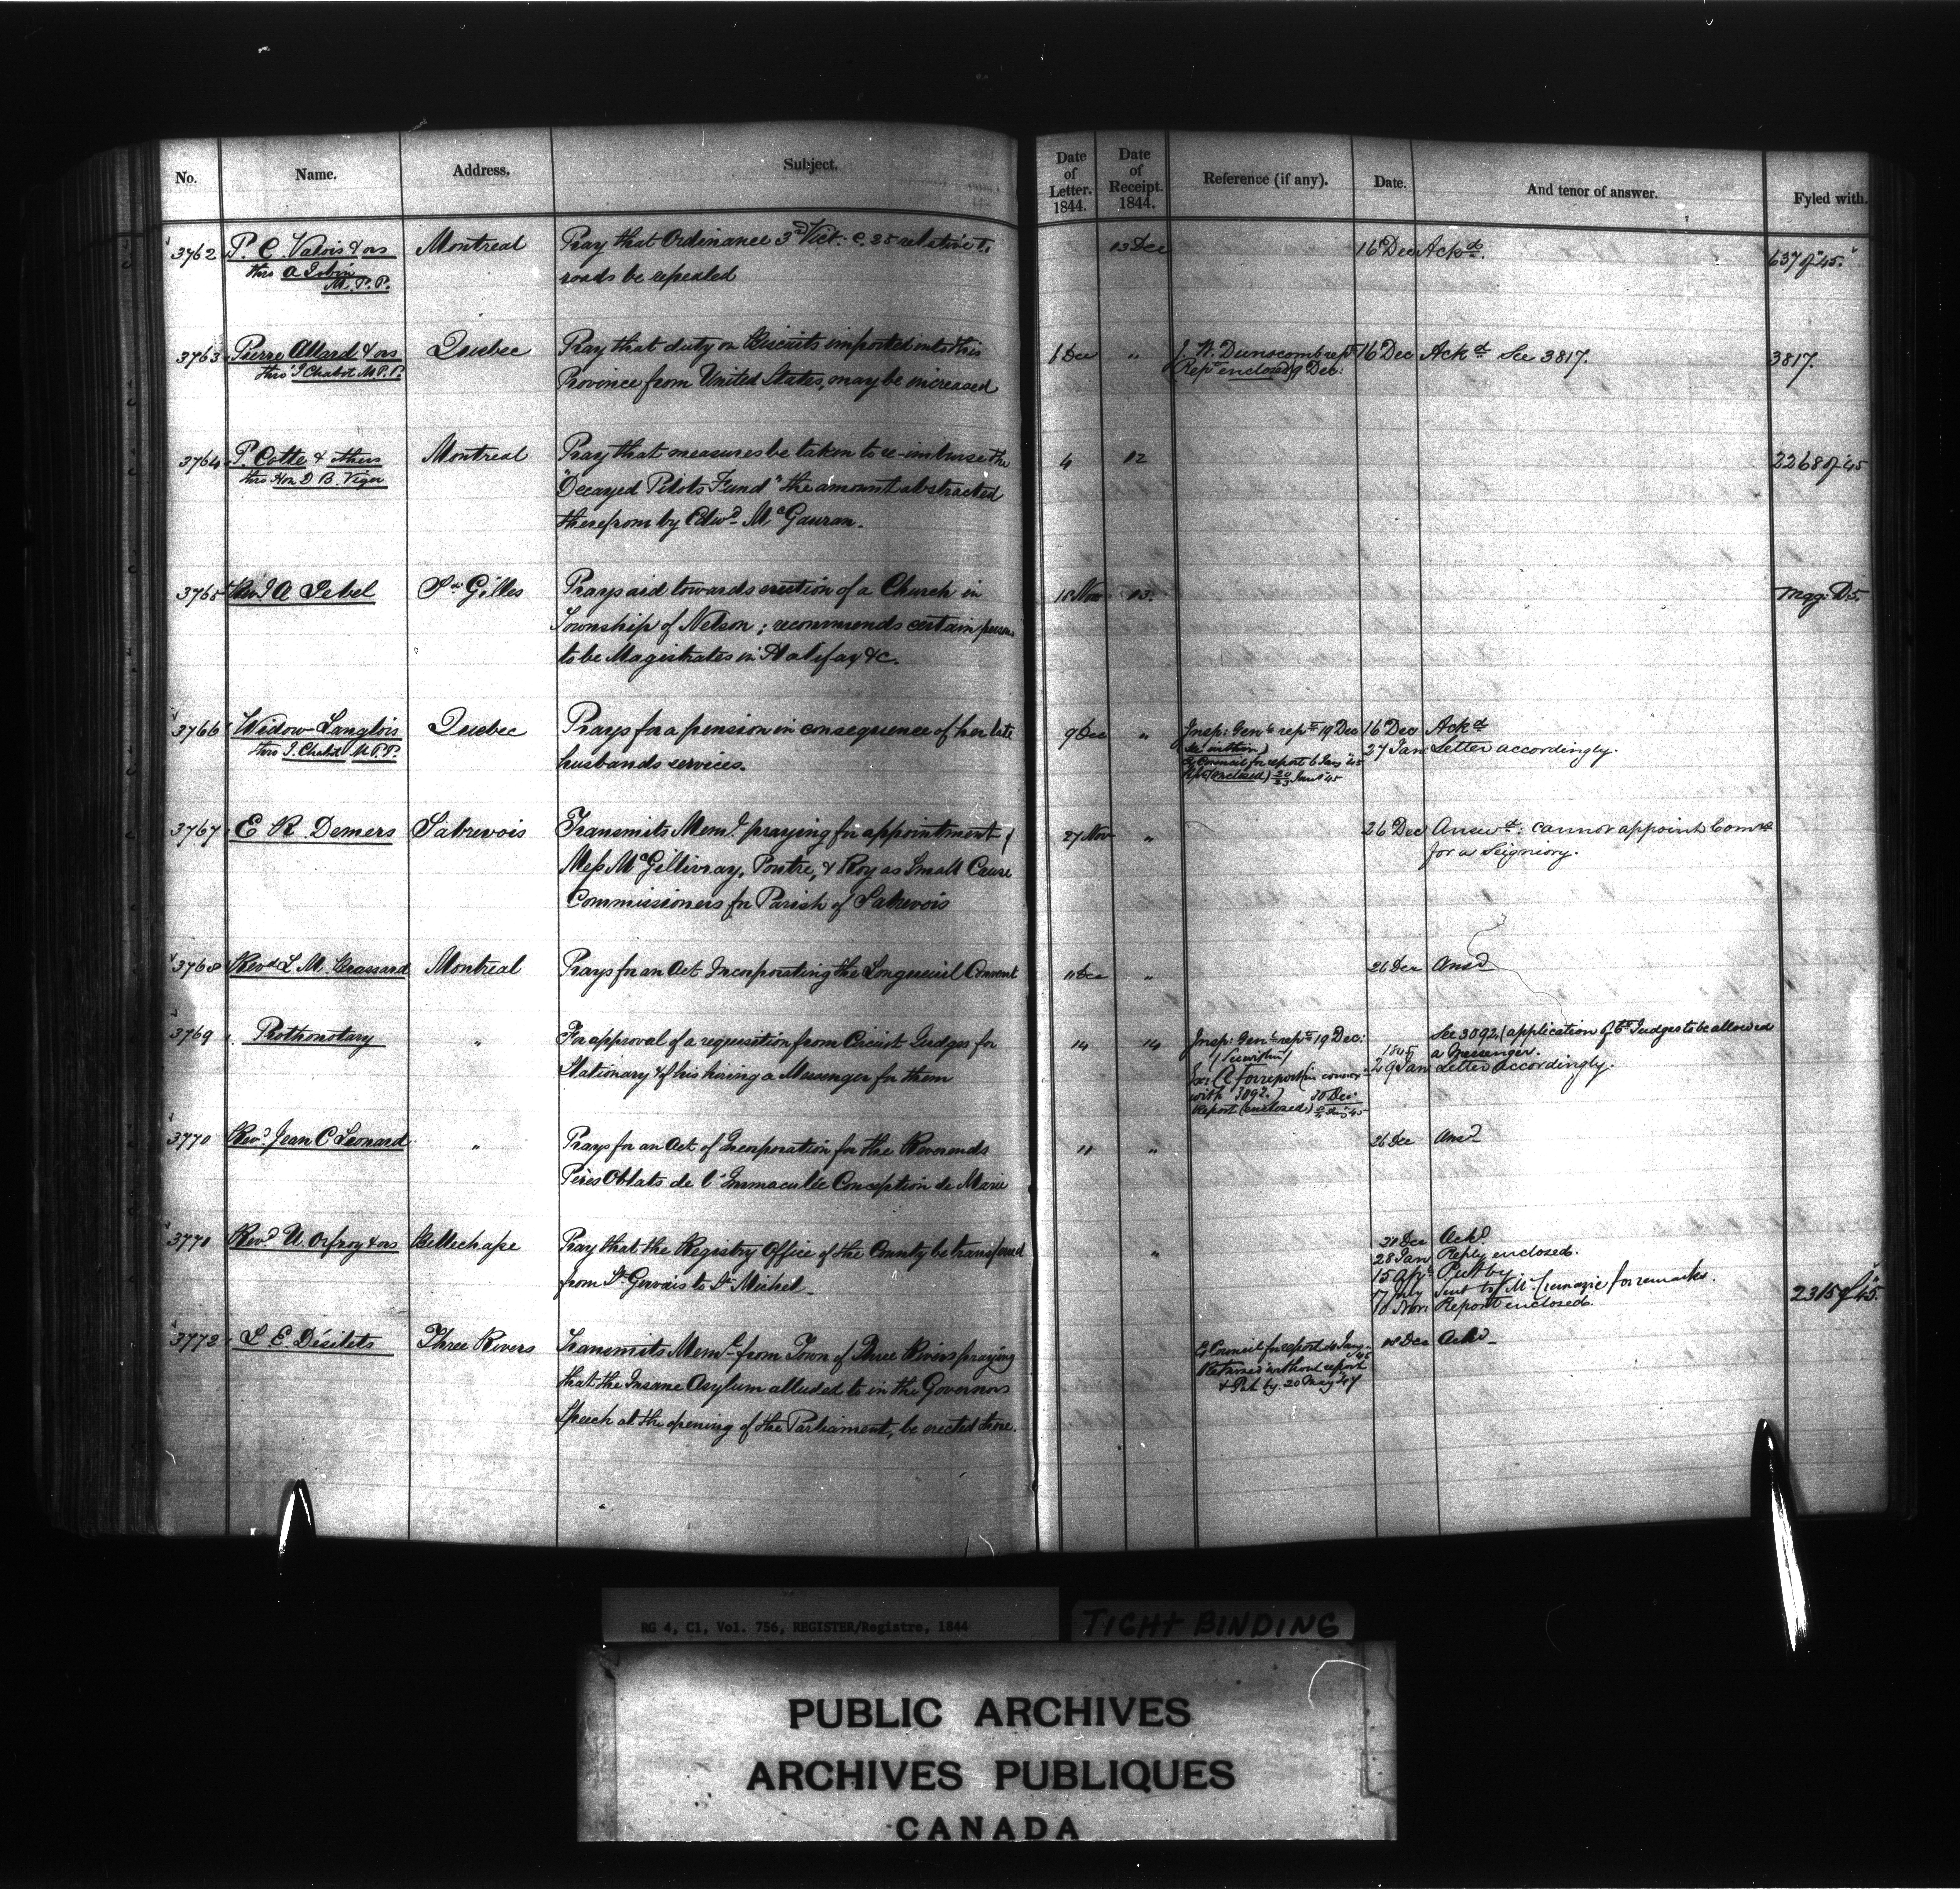 No. Name. Address. Subject. Date of Letter. 1844. Date of Receipt. 1844. Reference (if any). Date. And tenor of answer. Fyled with.
3762 P. C. Valois & ors Montreal Pray that Ordinance 3rd Vict: c. 25 relative to 13 Dec 16 Dec Ackd. 637 of "45."
thro A Jobin roads be repealed
M. P. P.
3763 Pierre Allard & ors Quebec Pray that duty on Biscuits imported into this 6 Dec " J. W. Dunscomb rept 16 Dec Ackd See 3817. 3817.
thro' J Chabot M.P.P. Province from United States, may be increased Rept enclosed) 9 Dec:
3764 P. Cotte & others Montreal Pray that measures be taken to re-imburse the 4 12 2268 of 45
thro Hon D B. Viger "Decayed Pilots Fund" the amount abstracted
therefrom by Edwd McGauran.
3765 Revd J A Lebel St Gilles Prays aid towards erection of a Church in 18 Nov 13. Mag: D.5.
Township of Nelson; recommends certain persons
to be Magistrates in Halifax &c.
3766 Widow Langlois Quebec Prays for a pension in consequence of her late 9 Dec " Insp: Genl rept 19 Dec 16 Dec Ackd
thro J. Chabot M.P.P. husbands services. (within) 27 Jan Letter accordingly.
Ex Council for report 6 Jany "45
(enclosed) Jany 45
3767 E R Demers Sabrevois Transmits Meml. praying for appointment of 27 Nov " 26 Dec Answd: cannot appoint Comrs
Mess McGillivray, Poutre, & Roy as Small Cause for a Seigniory.
Commissioners for Parish of Sabrevois
3768 Revd L M. Brassard Montreal Prays for an Act Incorporating the Longueuil Convent 11 Dec " 26 Dec Ansd
3769 Prothonotary " For approval of a requisition from Circuit Judges for 14 14 Insp: Genl rept 19 Dec: See 3092 (application of Ct Judges to be allowed
Stationary & of his hiring a Messenger for them (within) 1845 a Messenger.
Ex: C for report (in connex 29 Jan Letter accordingly.
with 3092.) 30 Dec:
Report (enclosed)
3770 Revd Jean C Leonard " Prays for an Act of Incorporation for the Reverends 11 " 26 Dec Ansd
Pères Oblats de l'Immaculée Conception de Marie
3771 Revd U. Orfroy & ors Bellechasse Pray that the Registry Office of the County be transferred " Dec Ackd
from St Gervais to St Michel _ 28 Jan Reply enclosed.
15 Apl Put by
17 July Sent to Mr Lemazie for remarks.
18 Nov Report enclosed. 2315 of "45."
3772 L. E. Désilets Three Rivers Transmits Meml. from Town of Three Rivers praying Ex Council for report Jany 45 18 Dec Ackd _
that the Insane Asylum alluded to in the Governors Returned without report
Speech at the opening of the Parliament, be erected there. & Put by 20 May 47
RG 4, C1, Vol. 756, REGISTER/Registre, 1844
TIGHT BINDING
PUBLIC ARCHIVES
ARCHIVES PUBLIQUES
CANADA